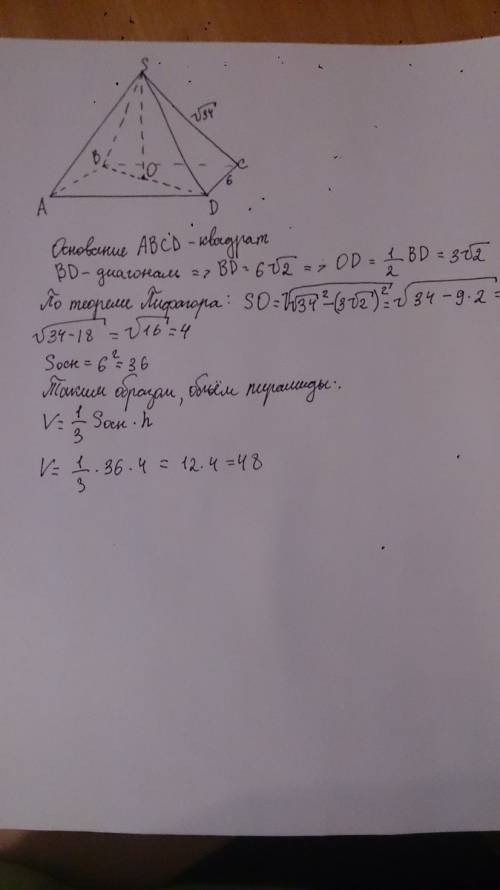 S
√34
B
O
C
6
A
D
Основание ABCD - квадрат
BD - диагональ => BD = 6√2 => OD = 1/2 BD = 3√2
По теореме Пифагора: SO = √(√34² - (3√2)²) = √(34 - 9·2) =
√(34-18) = √16 = 4
Sосн = 6² = 36
Таким образом, объём пирамиды:
V = 1/3 Sосн · h
V = 1/3 · 36 · 4 = 12 · 4 = 48